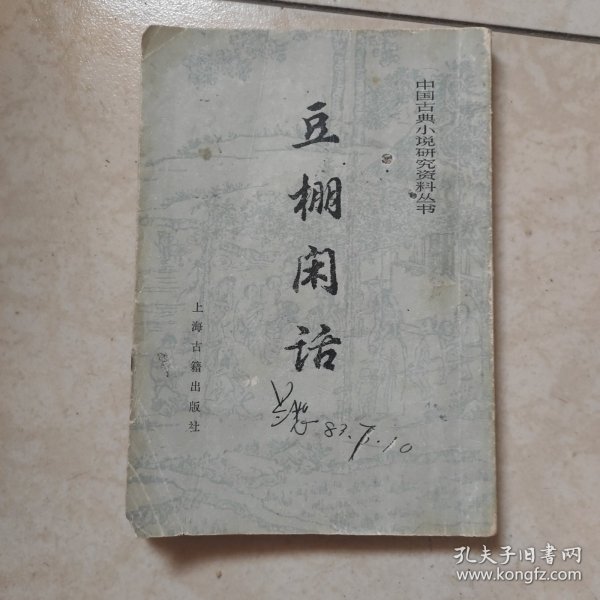 中国古典小说研究资料丛书
豆棚闲话
上海古籍出版社
83.7.10
孔夫子旧书网
www.kongfz.com